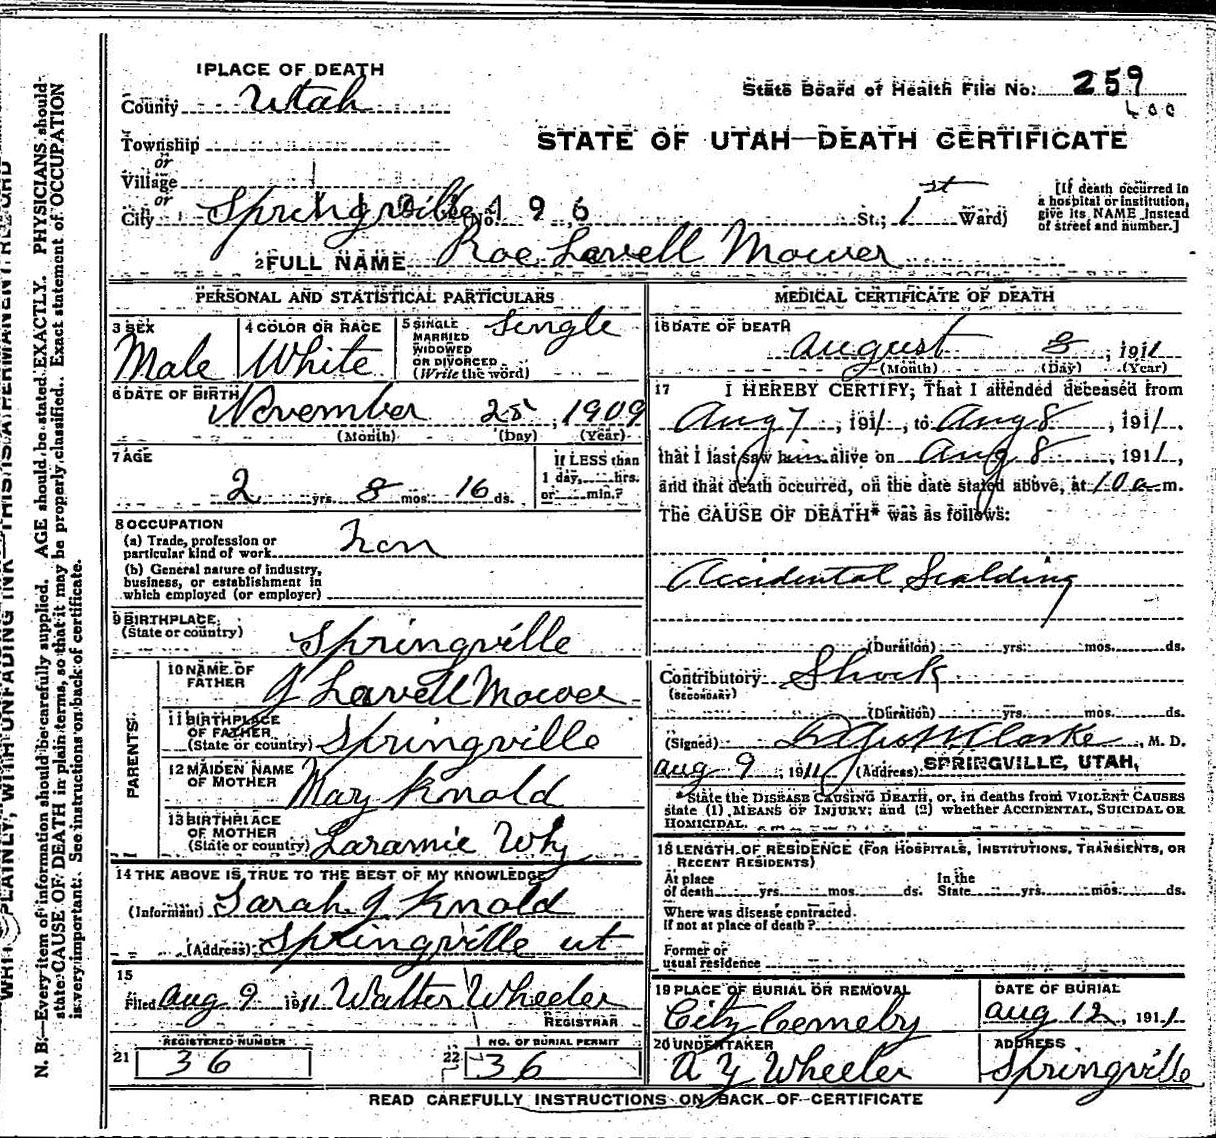 1 PLACE OF DEATH
County Utah
State Board of Health File No. 259
400
Township
or
Village
or
City Springville No. 196 St.; 1st Ward)
STATE OF UTAH—DEATH CERTIFICATE
[If death occurred in
a hospital or institution,
give its NAME instead
of street and number.]
2 FULL NAME Roe Lavell Mower
PERSONAL AND STATISTICAL PARTICULARS
3 SEX
Male
4 COLOR OR RACE
White
5 SINGLE
MARRIED
WIDOWED
OR DIVORCED
(Write the word)
Single
6 DATE OF BIRTH
November 25, 1909
(Month) (Day) (Year)
7 AGE
2 yrs. 8 mos. 16 ds.
If LESS than
1 day, hrs.
or min.?
8 OCCUPATION
(a) Trade, profession or
particular kind of work
(b) General nature of industry,
business, or establishment in
which employed (or employer)
9 BIRTHPLACE
(State or country)
Springville
PARENTS
10 NAME OF
FATHER
J Lavell Mower
11 BIRTHPLACE
OF FATHER
(State or country)
Springville
12 MAIDEN NAME
OF MOTHER
May Knold
13 BIRTHPLACE
OF MOTHER
(State or country)
Laramie Why
14 THE ABOVE IS TRUE TO THE BEST OF MY KNOWLEDGE
(Informant) Sarah J Knold
(Address) Springville ut
15
Filed Aug 9 1911 Walter Wheeler
REGISTRAR
REGISTERED NUMBER
21 36
NO. OF BURIAL PERMIT
22 36
MEDICAL CERTIFICATE OF DEATH
16 DATE OF DEATH
August 8, 1911
(Month) (Day) (Year)
17 I HEREBY CERTIFY; That I attended deceased from
Aug 7, 1911, to Aug 8, 1911.
that I last saw him alive on Aug 8, 1911,
and that death occurred, on the date stated above, at 10 a m.
The CAUSE OF DEATH* was as follows:
Accidental Scalding
(Duration) yrs. mos. ds.
Contributory Shock
(SECONDARY)
(Duration) yrs. mos. ds.
(Signed) Clarke, M. D.
Aug 9, 1911 (Address) SPRINGVILLE, UTAH,
*State the DISEASE CAUSING DEATH, or, in deaths from VIOLENT CAUSES
state (1) MEANS OF INJURY; and (2) whether ACCIDENTAL, SUICIDAL OR
HOMICIDAL.
18 LENGTH OF RESIDENCE (FOR HOSPITALS, INSTITUTIONS, TRANSIENTS, OR
RECENT RESIDENTS)
At place
of death yrs. mos. ds.
In the
State yrs. mos. ds.
Where was disease contracted.
If not at place of death?
Former or
usual residence
19 PLACE OF BURIAL OR REMOVAL
City Cemetery
DATE OF BURIAL
Aug 12, 1911.
20 UNDERTAKER
A Y Wheeler
ADDRESS
Springville
READ CAREFULLY INSTRUCTIONS ON BACK OF CERTIFICATE
WRITE PLAINLY, WITH UNFADING INK—THIS IS A PERMANENT RECORD
N. B.—Every item of information should be carefully supplied. AGE should be stated EXACTLY. PHYSICIANS should
state CAUSE OF DEATH in plain terms, so that it may be properly classified. Exact statement of OCCUPATION
is very important. See instructions on back of certificate.